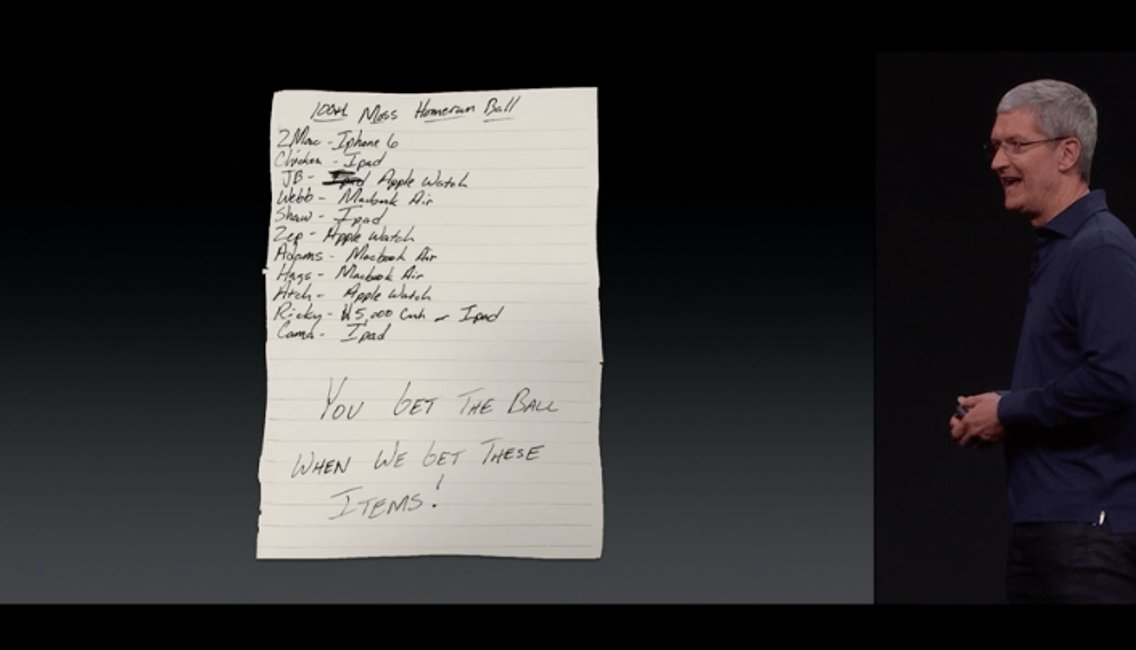 100th Moss Homerun Ball
ZMac - Iphone 6
Chicken - Ipad
JB - Ipad Apple Watch
Webb - Macbook Air
Shaw - Ipad
Zep - Apple Watch
Adams - Macbook Air
Hags - Macbook Air
Atch - Apple Watch
Ricky - $5,000 Cash or Ipad
Cama - Ipad
YOU GET THE BALL
WHEN WE GET THESE
ITEMS!